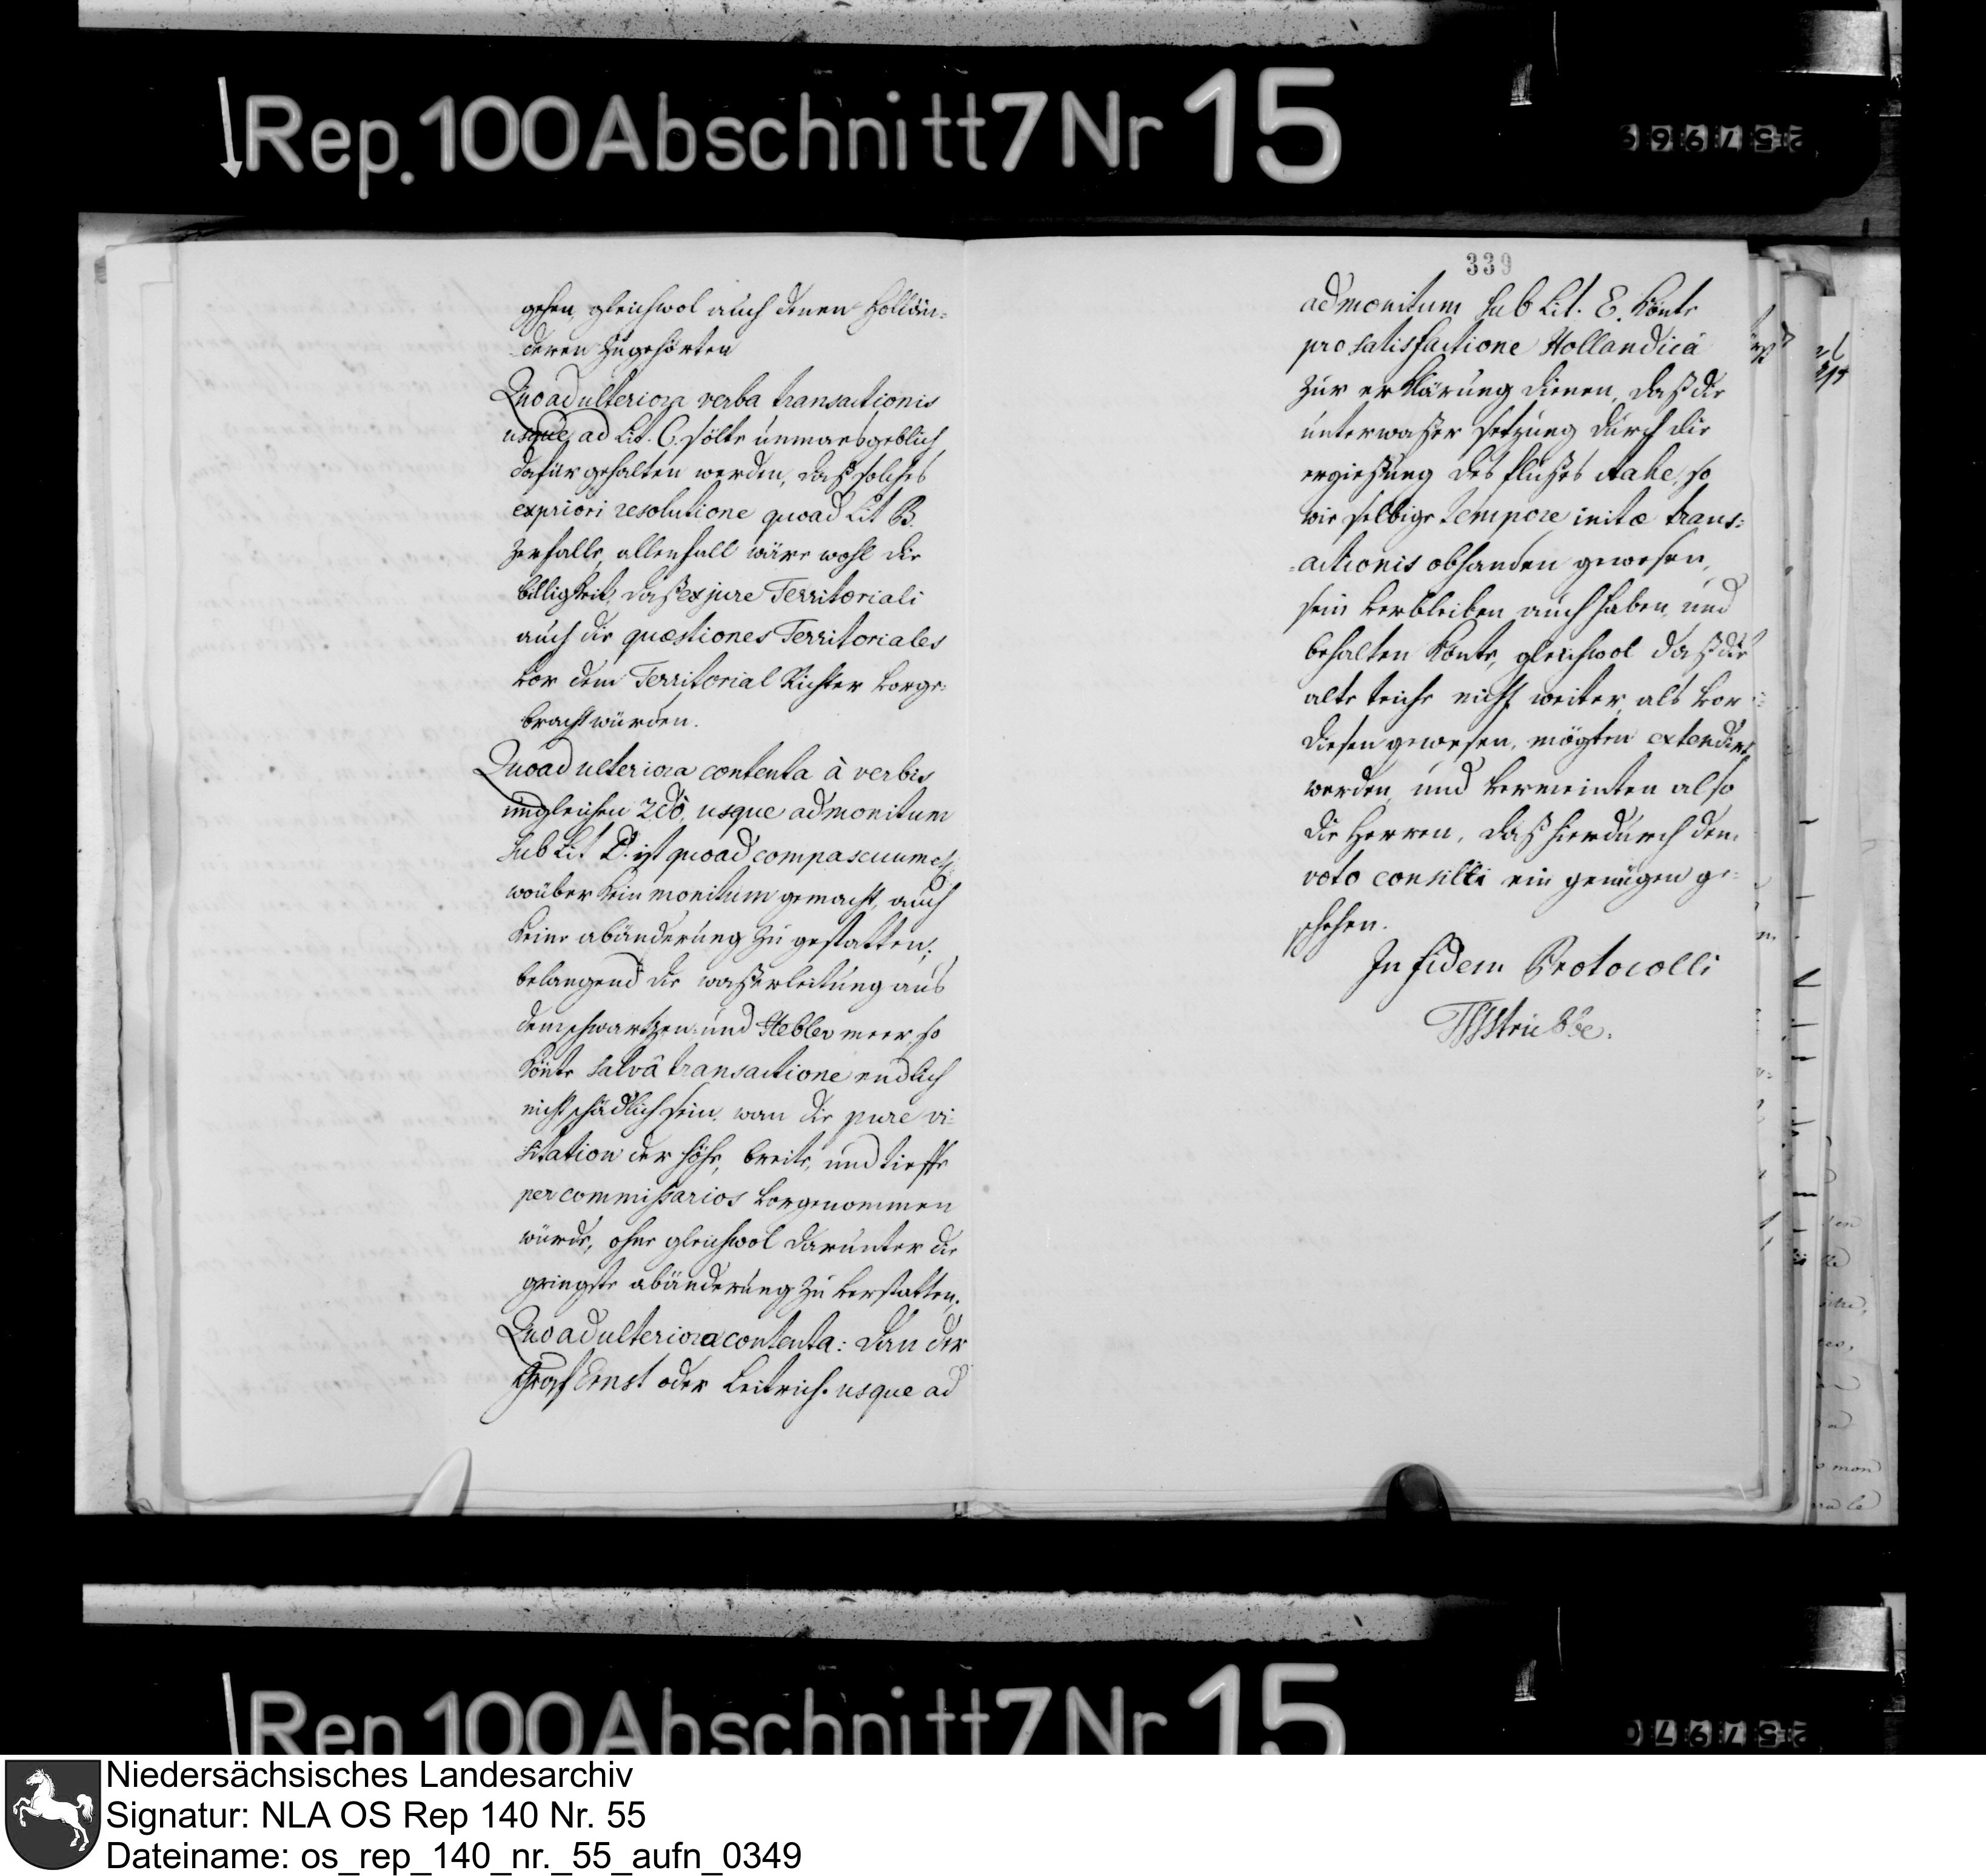 Rep. 100 Abschnitt 7 Nr 15
257969
gehen, gleichwol auch denen Hollän-
deren zugehörten
Quoad ulteriora verba transactionis
usque ad Lit. C. sölte unmaesgeblich
dafür gehalten werden, daß solches
ex priori resolutione quoad Lit B.
zerfalle, allenfall wäre wohl die
billigkeit, daß ex jure Territoriali
auch die quæstiones Territoriales
vor dem Territorial Richter vorge-
bracht würden.
Quoad ulteriora contenta à verbis
imgleichen 2dò, usque ad monitum
sub Lit D. ist quoad compascuum
worüber kein monitum gemacht, auch
keine abänderung zu gestatten;
belangend die waßerleitung aus
dem schwartzen und Hebler meer, so
könte salvâ transactione endlich
nicht schädlich sein, wan die pure vi-
sitation der höhe, breite, und tieffe
per commissarios vorgenommen
würde, ohne gleichwol darunter die
gringste abänderung zu verstatten.
Quoad ulteriora contenta: dan der
Graf Ernst oder usque ad
339
ad monitum sub Lit. E. könte
pro satisfactione Hollandicâ
zur erklärung dienen, daß die
unterwaßer setzung durch die
ergießung des flußes Aahe, so
wie selbige tempore initæ trans-
-actionis obhanden gewesen,
sein verbleiben auch haben, und
behalten könte, gleichwol daß die
alte teiche nicht weiter, als vor
diesen gewesen, mögten extendirt
werden, und vermeinten also
die Herren, daß hierdurch dem
voto consilii ein genügen ge-
schehen.
In fidem Protocolli
Rep. 100 Abschnitt 7 Nr 15
257970
Niedersächsisches Landesarchiv
Signatur: NLA OS Rep 140 Nr. 55
Dateiname: os_rep_140_nr._55_aufn_0349